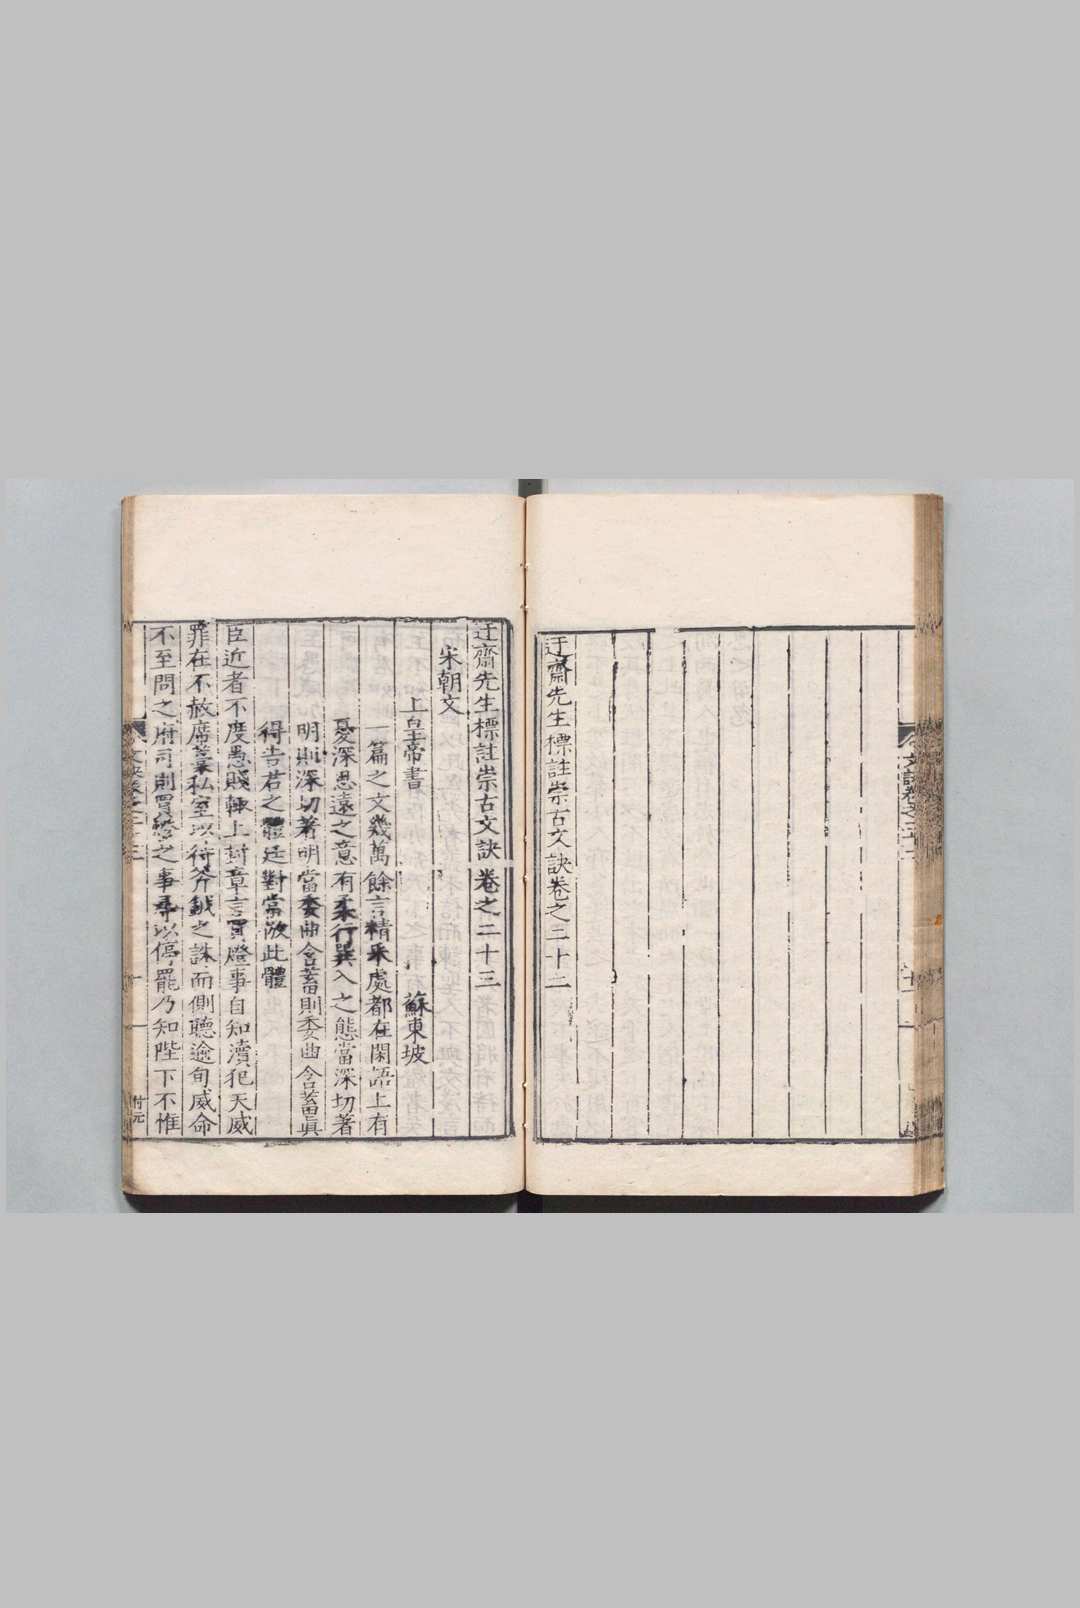 迂齋先生標註崇古文訣卷之二十二
迂齋先生標註崇古文訣卷之二十三
宋朝文
上皇帝書 蘇東坡
一篇之文幾萬餘言精采處都在閑語上有
憂深思遠之意有柔行巽入之態當深切著
明則深切著明當委曲含蓄則委曲含蓄真
得告君之體廷對當倣此體
臣近者不度愚賤輙上封章言買燈事自知瀆犯天威
罪在不赦席藁私室以待斧鉞之誅而側聽逾旬威命
不至問之府司則買燈之事尋以停罷乃知陛下不惟
付元